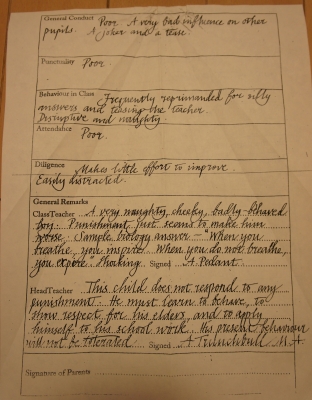 General Conduct Poor. A very bad influence on other
pupils. A joker and a tease.
Punctuality Poor
Behaviour in Class Frequently reprimanded for silly
answers and teasing the teacher.
Disruptive and naughty.
Attendance
Poor.
Diligence
Makes little effort to improve.
Easily distracted.
General Remarks
Class Teacher A very naughty, cheeky, badly behaved
boy. Punishment just seems to make him
worse. Sample biology answer "When you
breathe, you inspire. When you do not breathe,
you expire." Shocking. Signed A Pedant.
Head Teacher This child does not respond to any
punishment. He must learn to behave, to
show respect for his elders, and to apply
himself to his school work. His present behaviour
will not be tolerated. Signed A Trunchbull M.A.
Signature of Parents